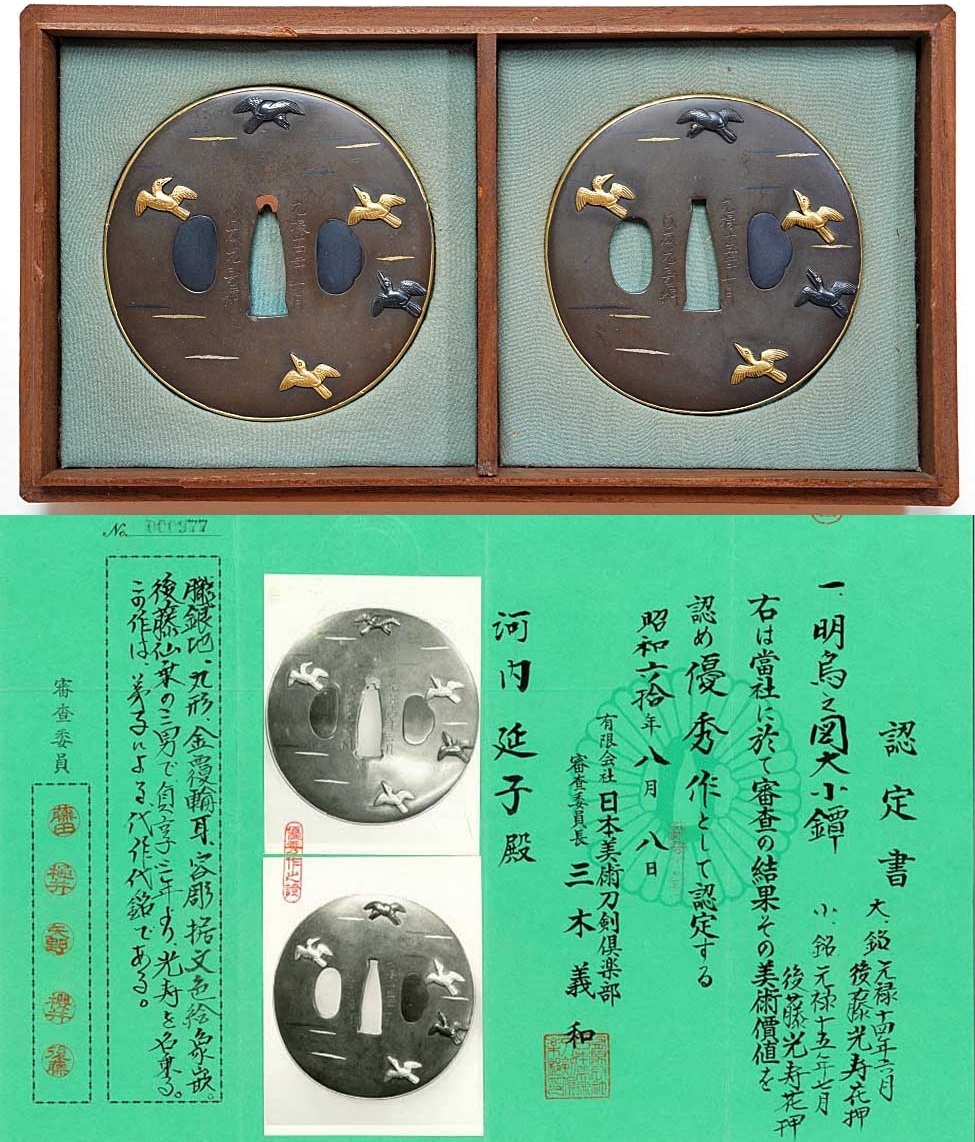 認定書
一、明烏之図大小鐔
大、銘 元禄十四年六月
後藤光寿在押
小、銘 元禄十五年七月
後藤光寿花押
右は當社に於て審査の結果その美術價値を
認め優秀作として認定する
昭和六拾年八月八日
有限会社 日本美術刀剣倶楽部
審査委員長 三木義和
河内延子殿
優秀作之証
No. 000977
朧銀地、丸形、金覆輪耳、容彫据文色絵象嵌。
後藤仙乗の三男で貞享二年より、光寿を名乗る。
この作は、弟子による、代作代銘である。
審査委員
藤田
櫻井
後藤